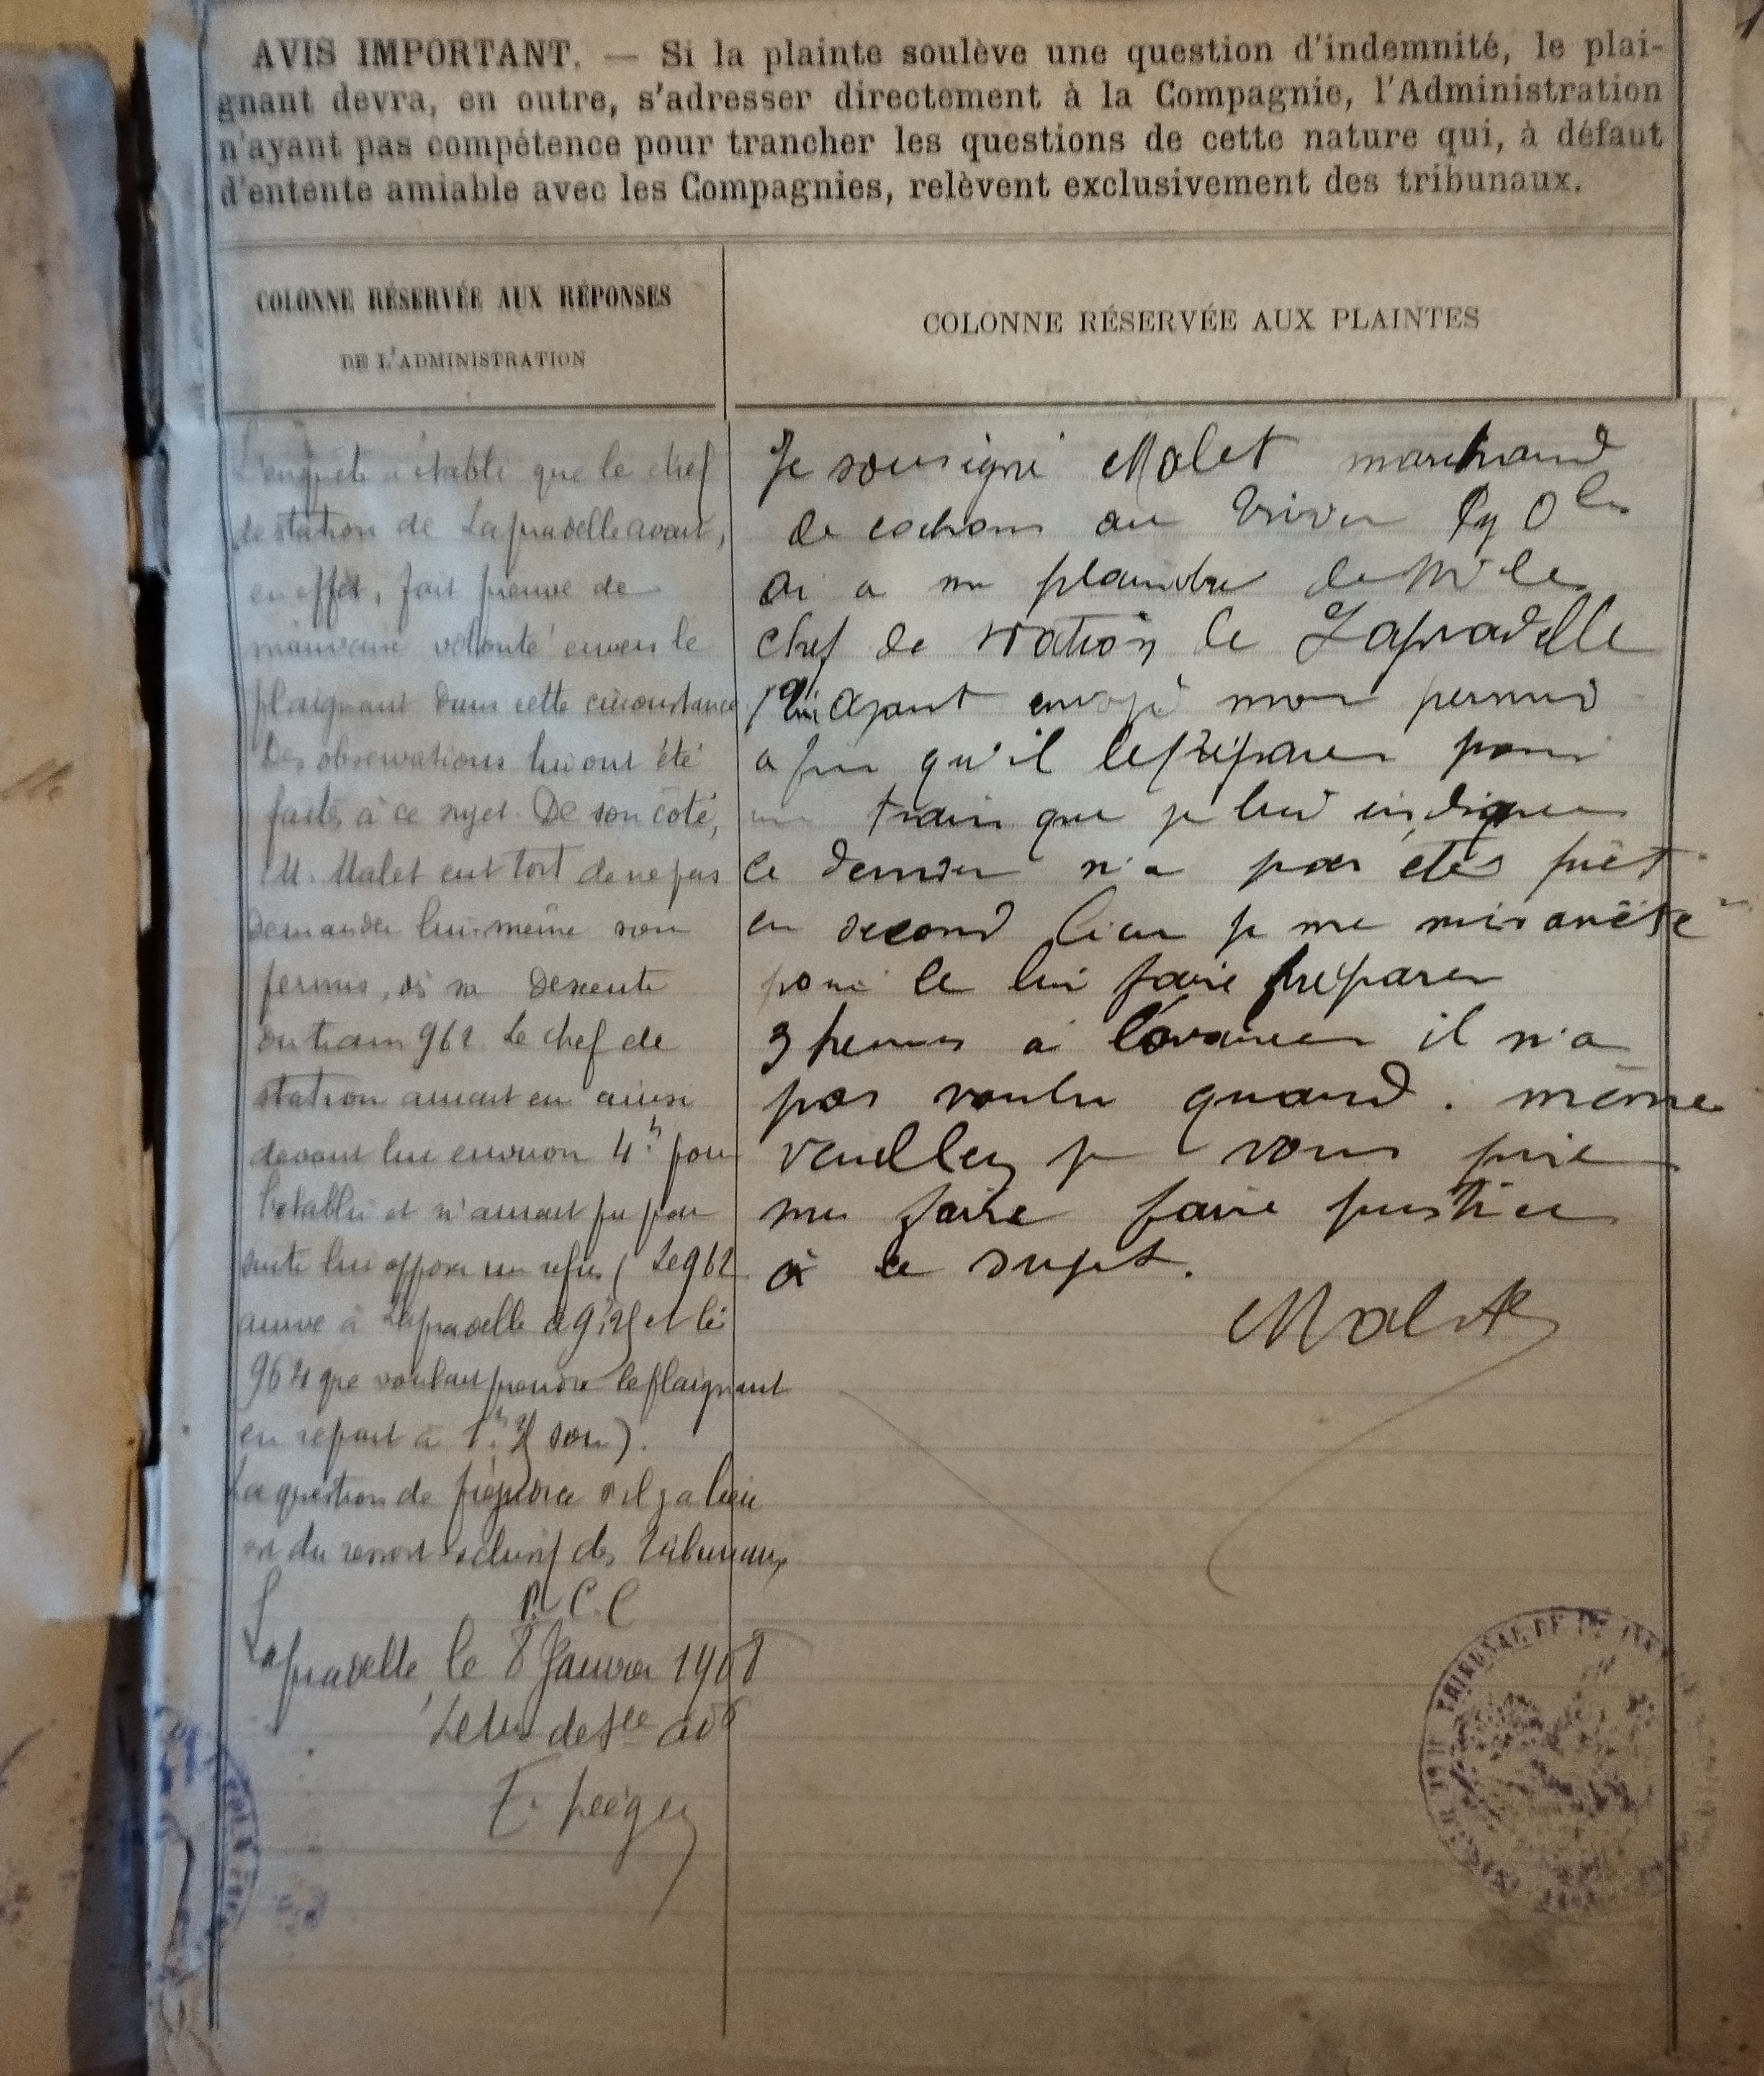 AVIS IMPORTANT. — Si la plainte soulève une question d'indemnité, le plai-
gnant devra, en outre, s'adresser directement à la Compagnie, l'Administration
n'ayant pas compétence pour trancher les questions de cette nature qui, à défaut
d'entente amiable avec les Compagnies, relèvent exclusivement des tribunaux.
COLONNE RÉSERVÉE AUX RÉPONSES
DE L'ADMINISTRATION
L'enquête a établi que le chef
de station de Lapradelle avait,
en effet, fait preuve de
mauvaise volonté envers le
plaignant dans cette circonstance
Des observations lui ont été
faites à ce sujet. De son côté,
M. Malet eut tort de ne pas
demander lui-même son
permis, dès sa descente
du train 962. Le chef de
station aurait eu ainsi
devant lui environ 4h pour
l'établir et n'aurait pu par
suite lui opposer un refus (Le 962
arrive à Lapradelle à 9h et le
964 que voulait prendre le plaignant
en repart à 1h soir).
La question de préjudice s'il y a lieu
est du ressort exclusif des tribunaux
P. C. C
Lapradelle, le 8 Janvier 1908
COLONNE RÉSERVÉE AUX PLAINTES
Je sousigné Malet marchand
de cochons au
ai a me plaindre de Mr le
chef de station de Lapradelle
lui ayant envoyé mon permis
afin qu'il le prépares pour
un train que je lui indiques
ce dernier n'a pas étés prêt
en second lieu je me suis arrêté
pour le lui faire préparer
3 heures a l'avances il n'a
pas voulu quand. même
veuillez je vous prie
me faire faire justice
à ce sujet.
Malet
TRIBUNAL DE